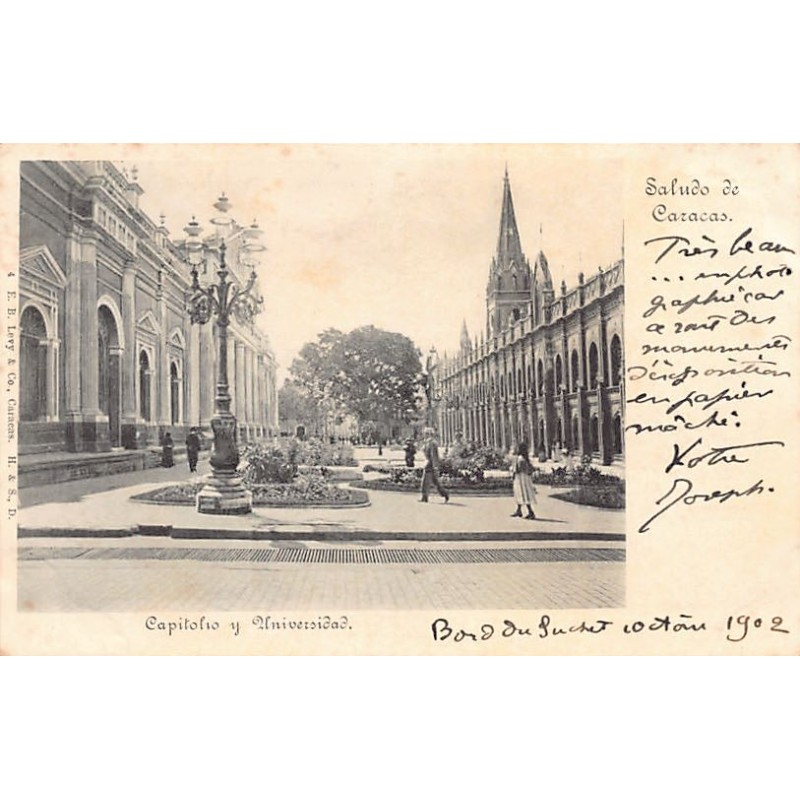 Saludo de
Caracas.
Très beau
... en photo
graphie car
à part des
monuments
d'exposition
en papier
mâché.
Votre
Joseph.
Capitolio y Universidad.
Bord du Suchet octobre 1902
4 E. B. Levy & Co., Caracas. H. & S., D.